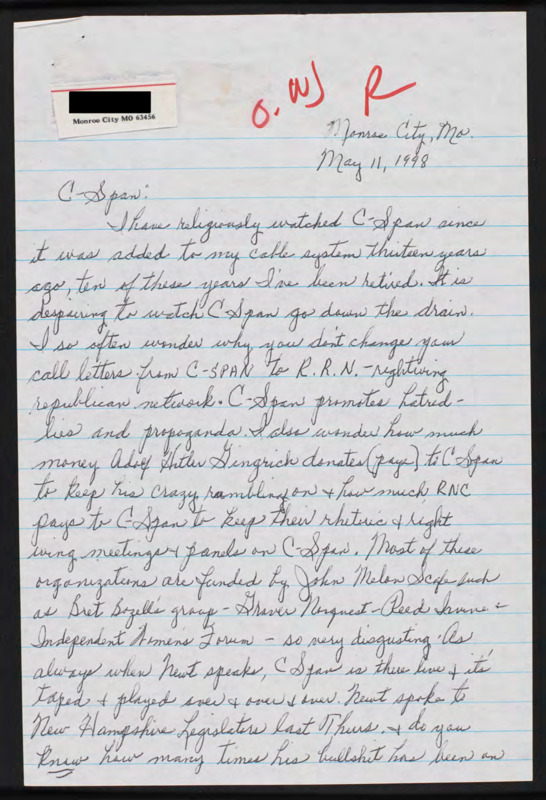 Monroe City MO 63456
O. W) R
Monroe City, Mo.
May 11, 1998
C-Span:
I have religiously watched C-Span since
it was added to my cable system thirteen years
ago, ten of these years I've been retired. It is
despairing to watch C Span go down the drain.
I so often wonder why you don't change your
call letters from C-SPAN to R.R.N. - rightwing
republican network. C-Span promotes hatred -
lies and propaganda. I also wonder how much
money Adolf Hitler Gingrich donates (pays) to C Span
to keep his crazy rambling on + how much RNC
pays to C-Span to keep their rhetoric + right
wing meetings + panels on C-Span. Most of these
organizations are funded by John Melon Scafe such
as Bret Bozell's group - Graver Norquest - Reed Irvine +
Independent Women's Forum - so very disgusting. As
always when Newt speaks, C Span is there live + it's
taped + played over + over + over. Newt spoke to
New Hampshire Legislators last Thurs. + do you
know how many times his bullshit has been on